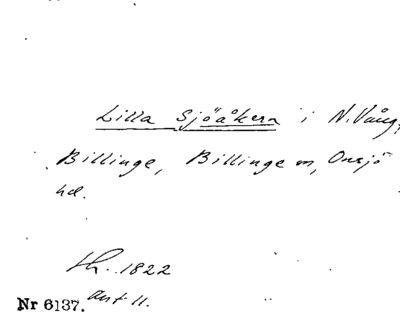 Lilla Sjöåkern i N. Vång,
Billinge, Billinge sn, Onsjö
hd.
Lh. 1822
Ant. 11.
Nr 6137.